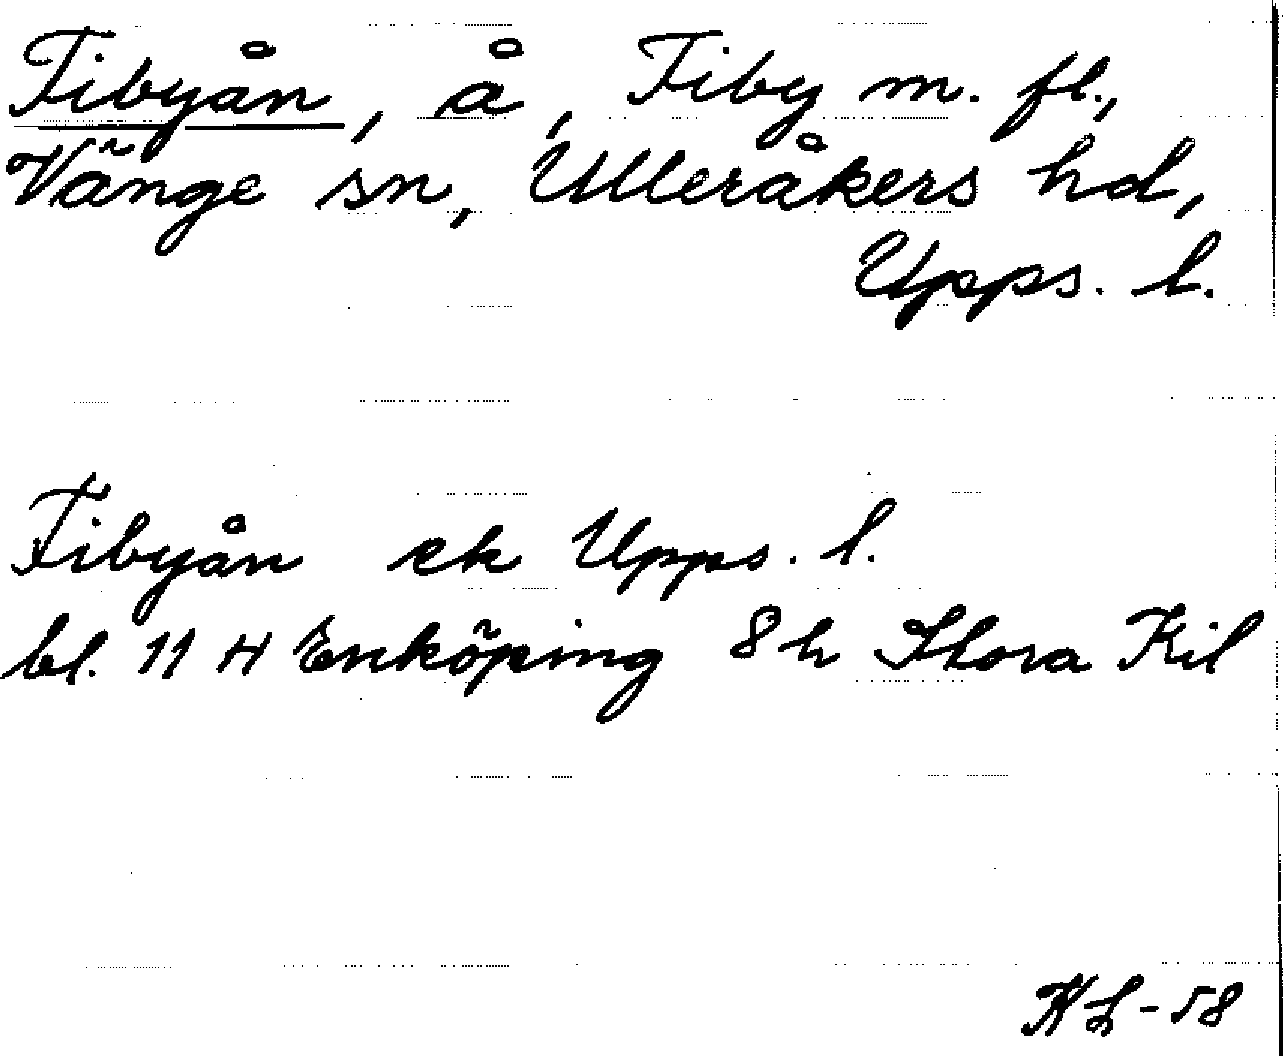 Fibyån, å, Fiby m. fl.,
Vänge sn, Ulleråkers hd,
Upps. l.
Fibyån ek Upps. l.
bl. 11 H Enköping 8 h Stora Kil
KL-58